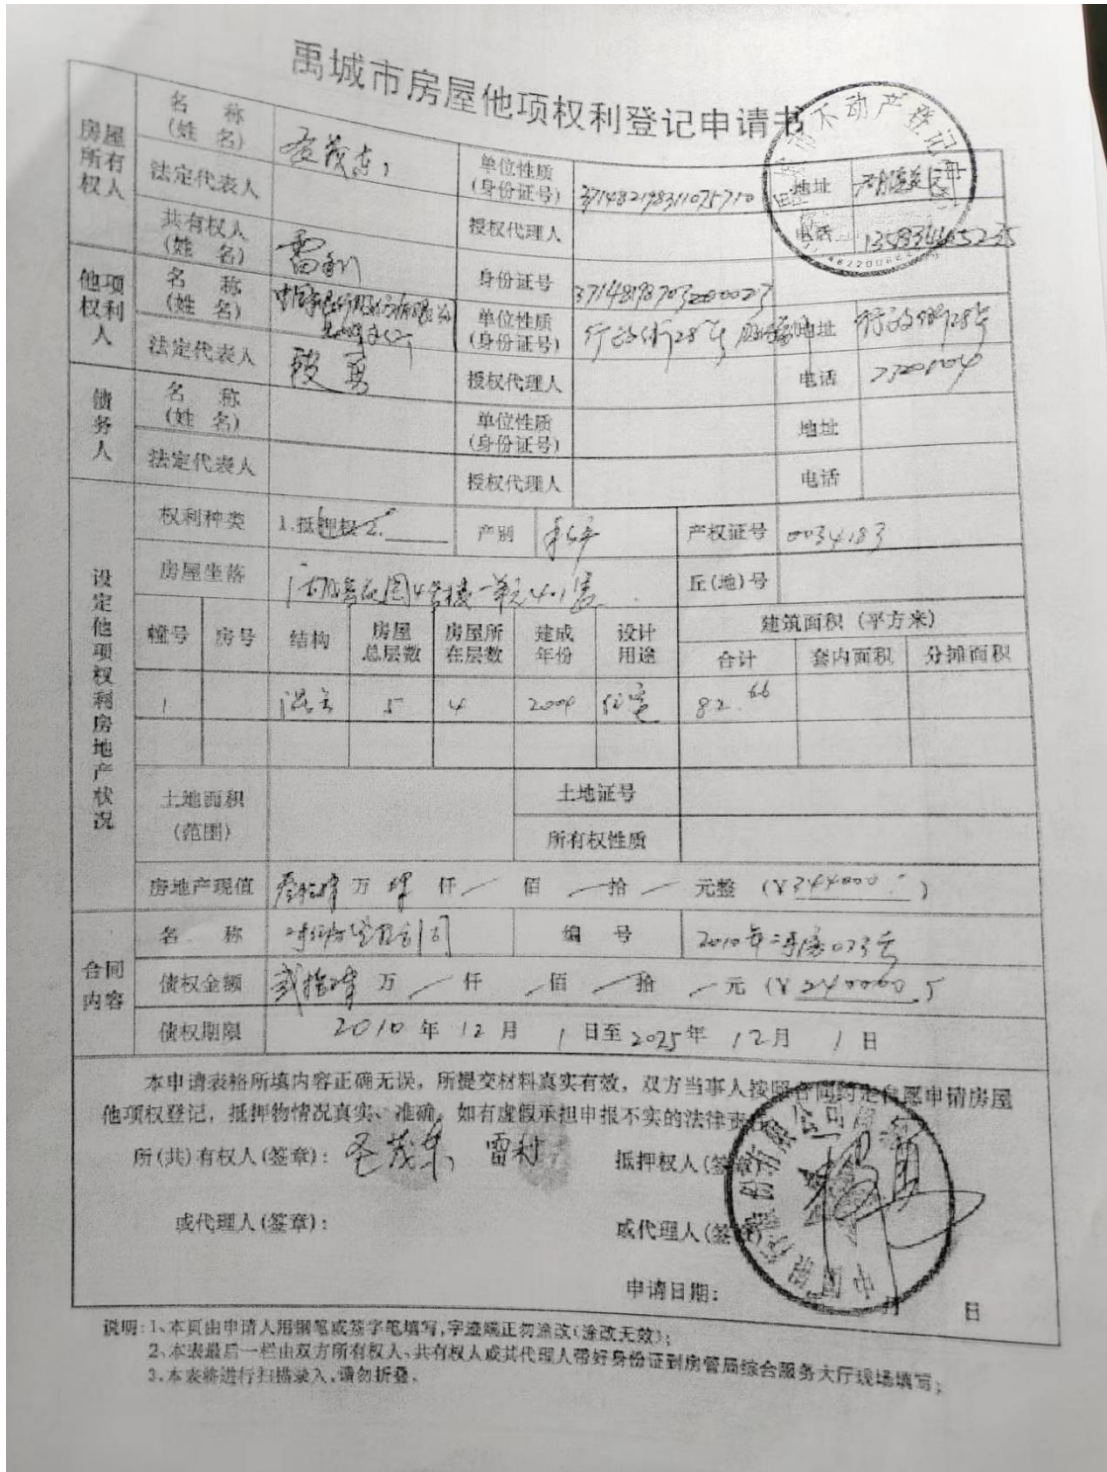 禹城市房屋他项权利登记申请书
房屋所有权人
名称(姓名)
茂东
单位性质(身份证号)
371482198311075710
地址
法定代表人
授权代理人
电话
共有权人(姓名)
雷利
身份证号
他项权利人
名称(姓名)
单位性质(身份证号)
行政街28号
地址
行政街28号
法定代表人
段勇
授权代理人
电话
债务人
名称(姓名)
单位性质(身份证号)
地址
法定代表人
授权代理人
电话
设定他项权利房地产状况
权利种类
1.抵押权 2.
产别
私产
产权证号
0034183
房屋坐落
花园4号楼一单元401室
丘(地)号
幢号
房号
结构
房屋总层数
房屋所在层数
建成年份
设计用途
建筑面积(平方米)
合计
套内面积
分摊面积
1
混合
5
4
2004
住宅
82.66
土地面积(范围)
土地证号
所有权性质
房地产现值
叁拾肆 万 肆 仟 佰 拾 元整 (¥344000)
合同内容
名称
编号
2010年 房023号
债权金额
贰拾肆 万 仟 佰 拾 元 (¥240000)
债权期限
2010 年 12 月 1 日至 2025 年 12 月 1 日
本申请表格所填内容正确无误,所提交材料真实有效,双方当事人按照合同约定自愿申请房屋
他项权登记,抵押物情况真实、准确。如有虚假承担申报不实的法律责
所(共)有权人(签章):
茂东 雷利
抵押权人(签章)
或代理人(签章):
或代理人(签章)
申请日期:
月 日
说明:1、本页由申请人用钢笔或签字笔填写,字迹端正勿涂改(涂改无效);
2、本表最后一栏由双方所有权人、共有权人或其代理人带好身份证到房管局综合服务大厅现场填写;
3、本表将进行扫描录入,请勿折叠。
不动产登记